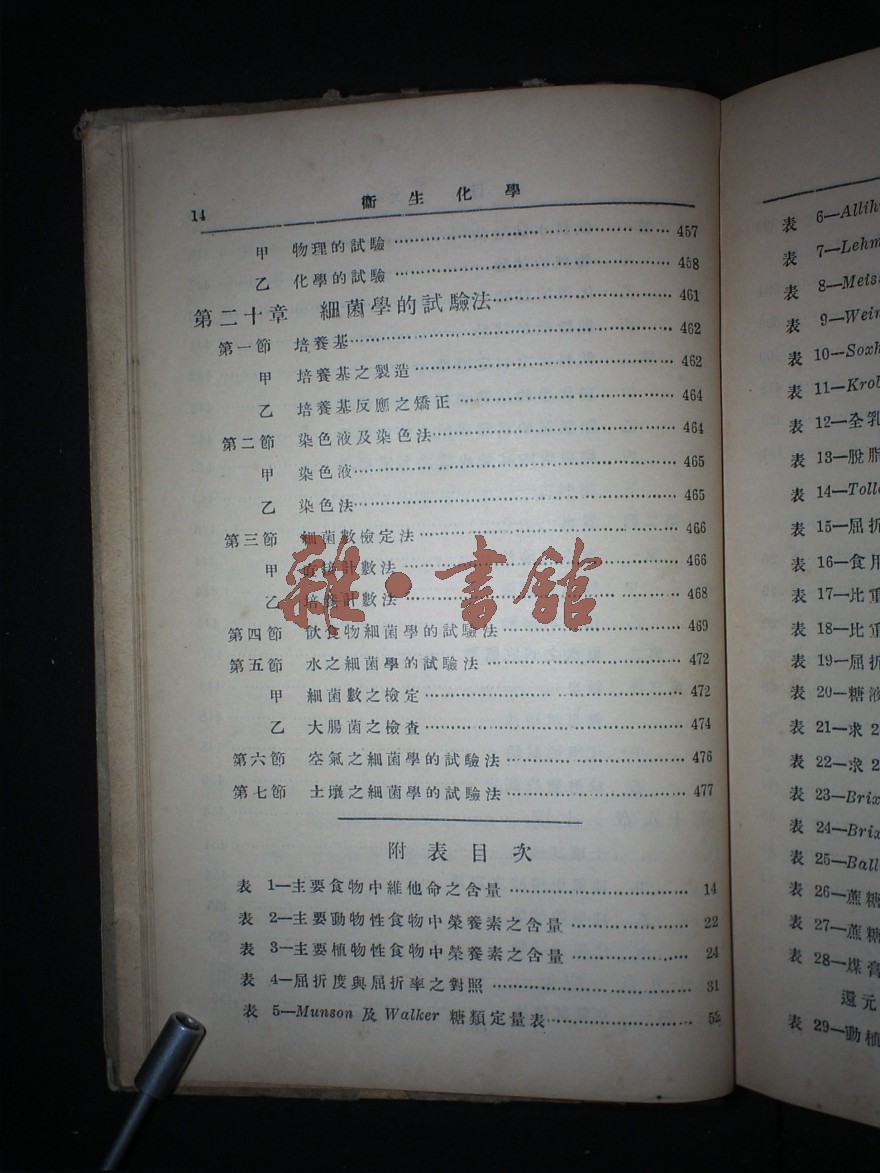 14
衞生化學
甲 物理的試驗 457
乙 化學的試驗 458
第二十章 細菌學的試驗法 461
第一節 培養基 462
甲 培養基之製造 462
乙 培養基反應之矯正 464
第二節 染色液及染色法 464
甲 染色液 465
乙 染色法 465
第三節 細菌數檢定法 466
甲 直接計數法 466
乙 培養計數法 468
第四節 飲食物細菌學的試驗法 469
第五節 水之細菌學的試驗法 472
甲 細菌數之檢定 472
乙 大腸菌之檢查 474
第六節 空氣之細菌學的試驗法 476
第七節 土壤之細菌學的試驗法 477
附表目次
表 1—主要食物中維他命之含量 14
表 2—主要動物性食物中榮養素之含量 22
表 3—主要植物性食物中榮養素之含量 24
表 4—屈折度與屈折率之對照 31
表 5—Munson 及 Walker 糖類定量表 52
雜·書館
表 6—Allih
表 7—Lehm
表 8—Meis
表 9—Wein
表 10—Soxh
表 11—Krob
表 12—全乳
表 13—脫脂
表 14—Toll
表 15—屈折
表 16—食用
表 17—比重
表 18—比重
表 19—屈折
表 20—糖液
表 21—求 2
表 22—求 2
表 23—Brix
表 24—Brix
表 25—Ball
表 26—蔗糖
表 27—蔗糖
表 28—煤膏
還元
表 29—動植